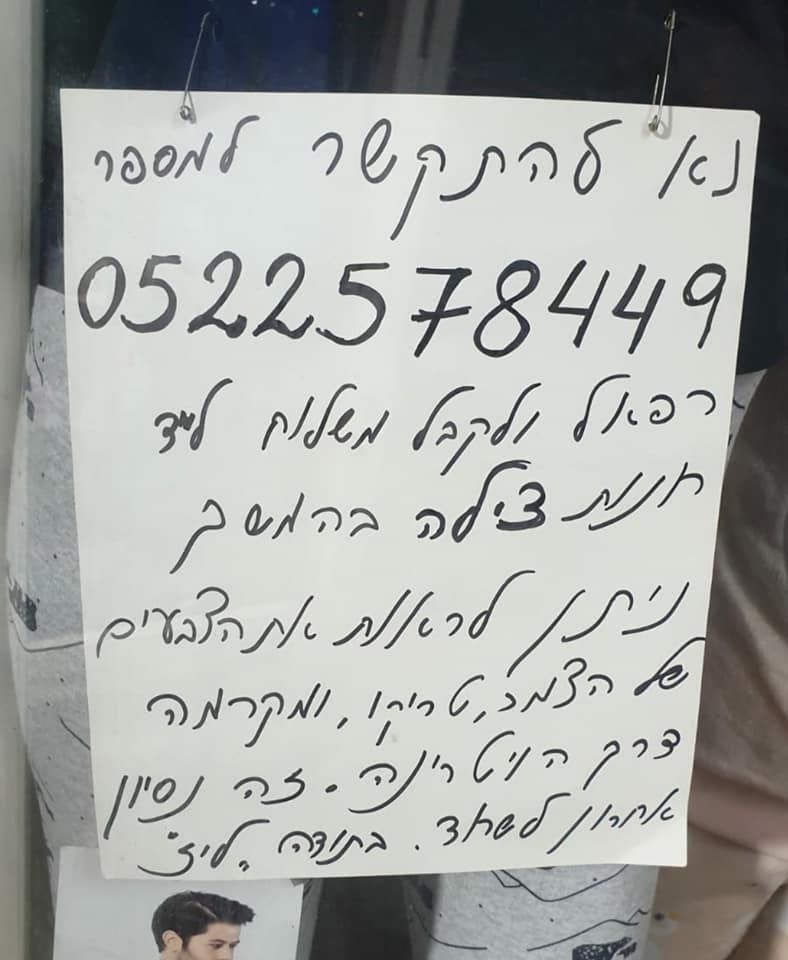 נא להתקשר למספר
0522578449
רפאל ולקבל משלוח ליד
חנות צילה בהמשך
ניתן לראות את הצבעים
של הצמר, טריקו, ומקרמה
דרך הויטרינה. זה נסיון
אחרון לשרוד. בתודה, ליז